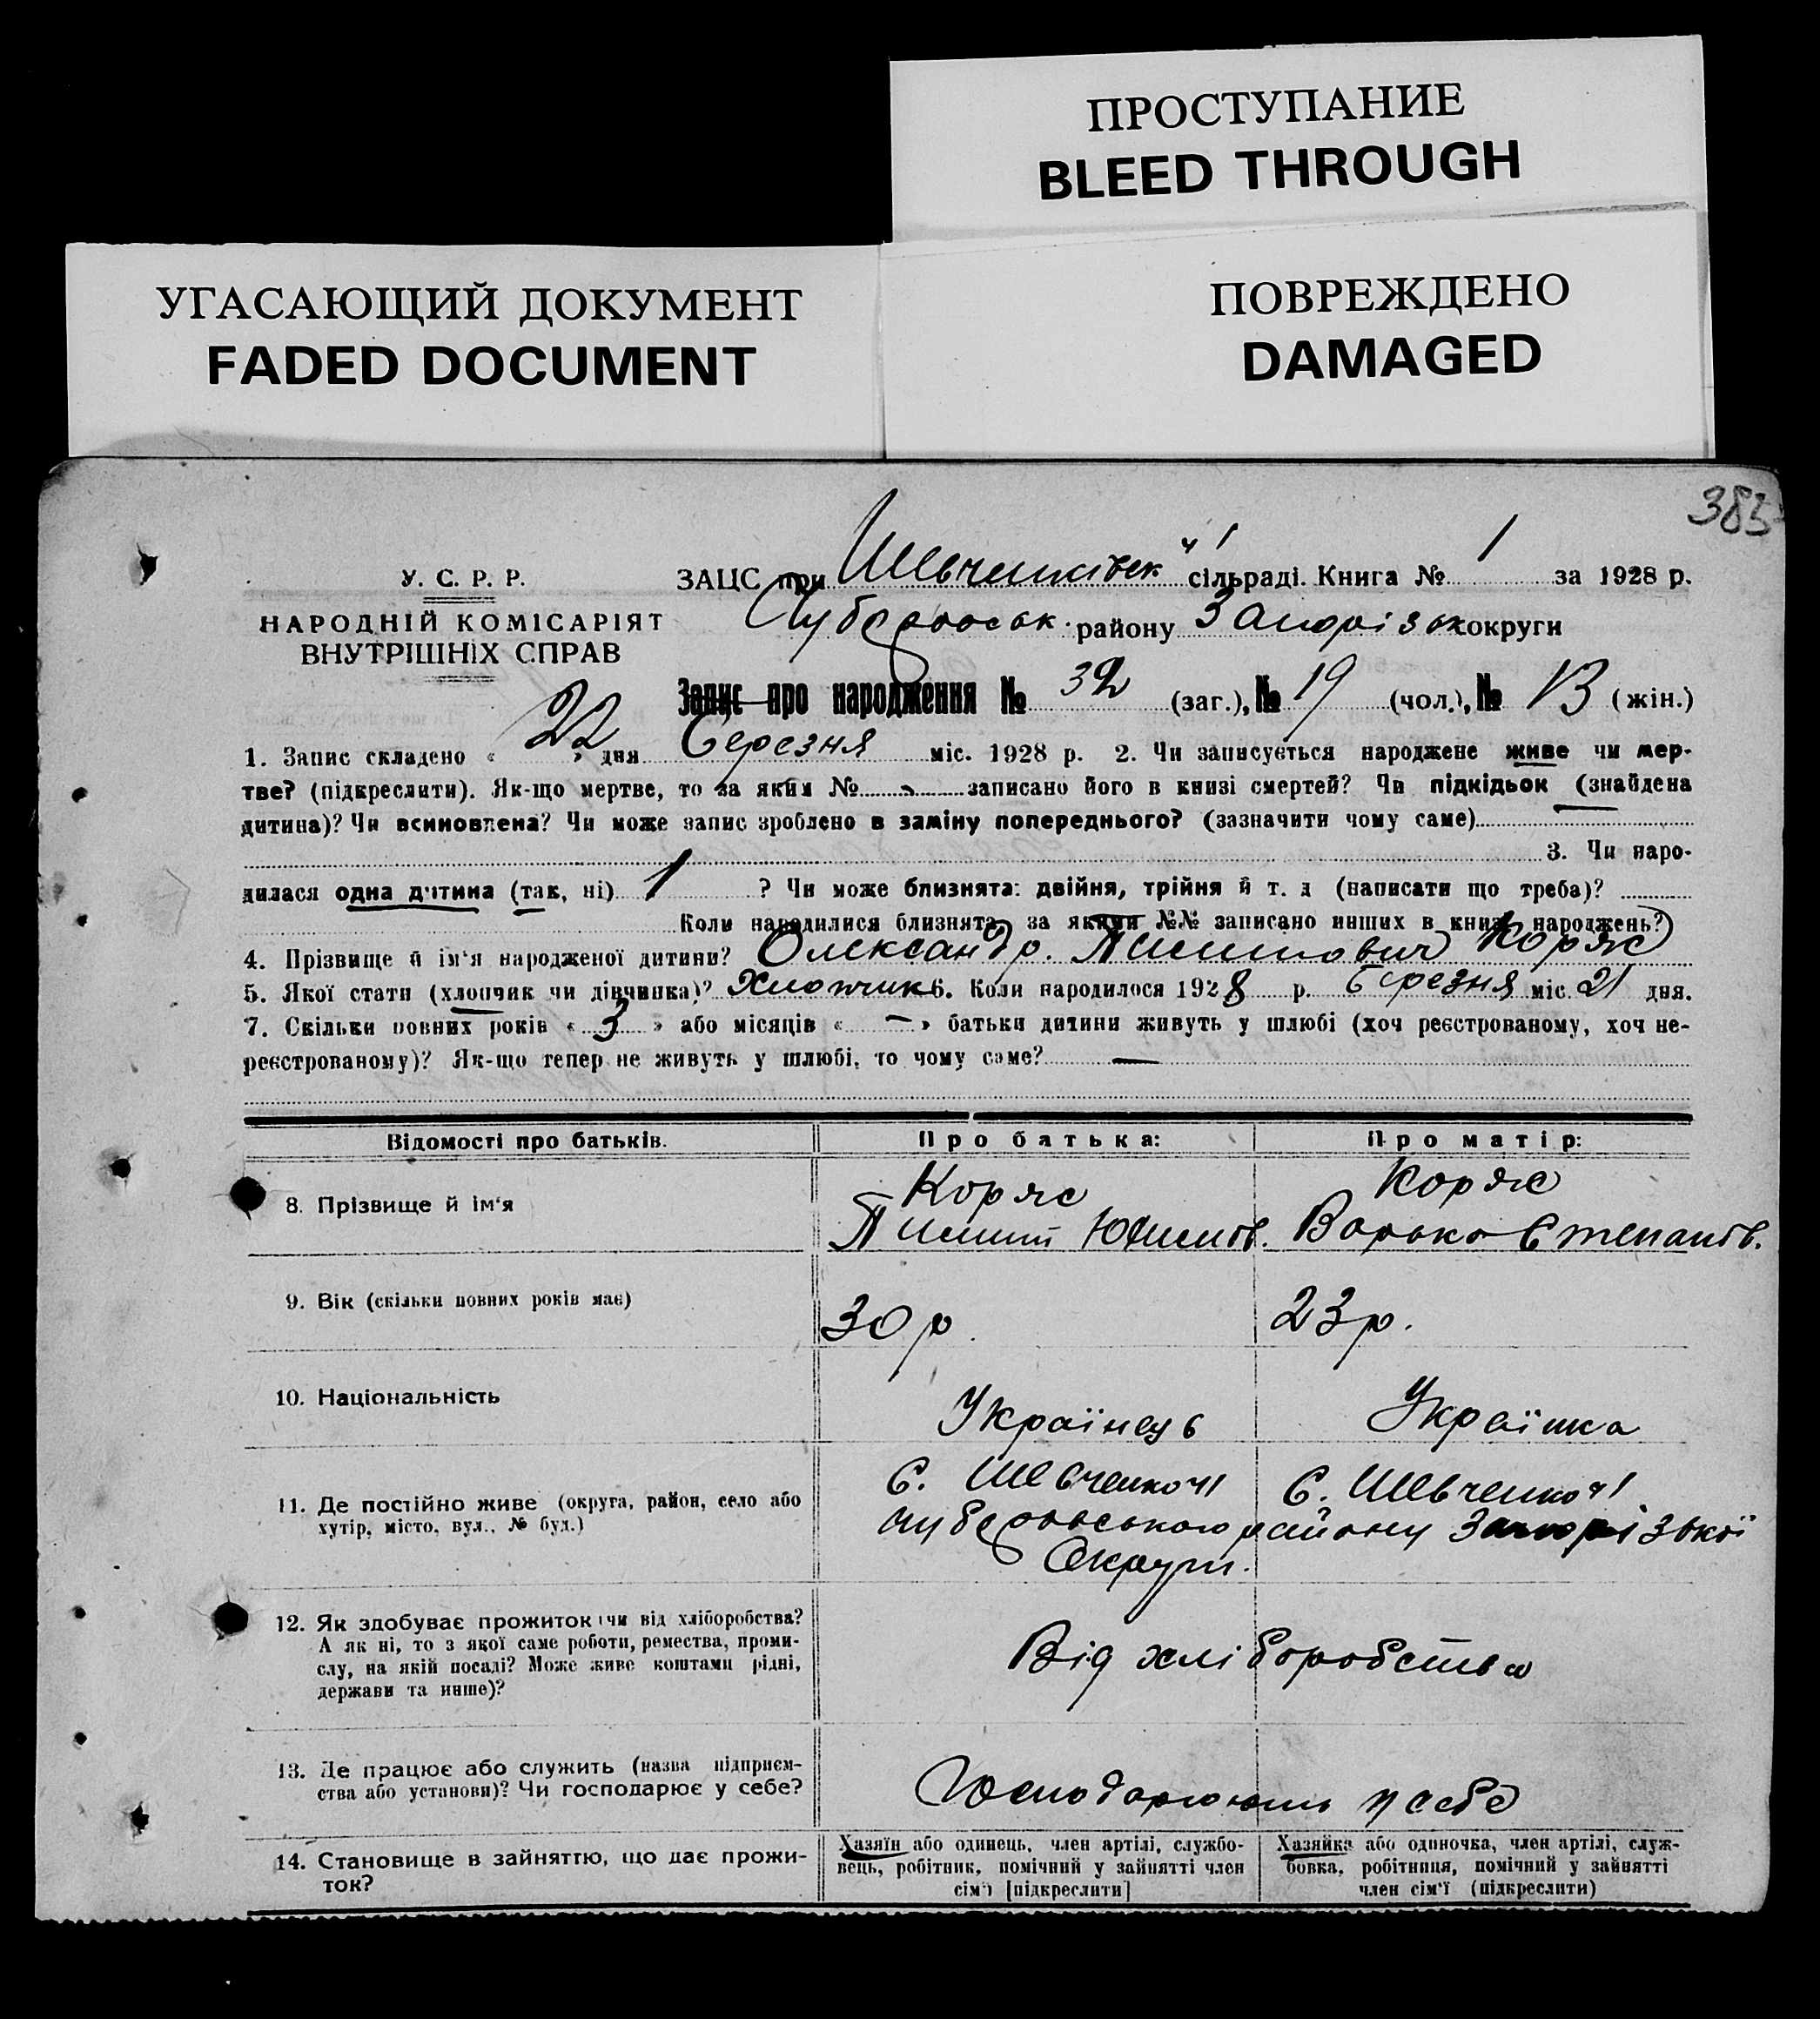 ПРОСТУПАНИЕ
BLEED THROUGH
УГАСАЮЩИЙ ДОКУМЕНТ
FADED DOCUMENT
ПОВРЕЖДЕНО
DAMAGED
383
У. С. Р. Р.
НАРОДНІЙ КОМІСАРІЯТ
ВНУТРІШНІХ СПРАВ
ЗАЦС при Шевченківськ ч1 сільраді. Книга № 1 за 1928 р.
району Запорізьк округи
Запис про народження № 32 (заг.), № 19 (чол.), № 13 (жін.)
1. Запис складено « 22 » дня Березня міс. 1928 р. 2. Чи записується народжене живе чи мер-
тве? (підкреслити). Як-що мертве, то за яким № записано його в книзі смертей? Чи підкідьок (знайдена
дитина)? Чи всиновлена? Чи може запис зроблено в заміну попереднього? (зазначити чому саме)
3. Чи наро-
дилася одна дитина (так, ні) 1 ? Чи може близнята: двійня, трійня й т. д (написати що треба)?
Коли народилися близнята, за якими №№ записано инших в книзі народжень?
4. Прізвище й ім'я народженої дитини? Олександр. Пилипович Коряк
5. Якої стати (хлопчик чи дівчинка)? Хлопчик 6. Коли народилося 1928 р. Березня міс. 21 дня.
7. Скільки повних років « 3 » або місяців « — » батьки дитини живуть у шлюбі (хоч реєстрованому, хоч не-
реєстрованому)? Як-що тепер не живуть у шлюбі, то чому саме? —
Відомості про батьків.
Про батька:
Про матір:
8. Прізвище й ім'я
Коряк
Пилип Юхимів.
Коряк
Варька Степанів.
9. Вік (скільки повних років має)
30 р.
23 р.
10. Національність
Українець
Українка
11. Де постійно живе (округа, район, село або
хутір, місто, вул., № буд.)
С. Шевченко ч1
С. Шевченко ч1
району Запорізької
Округи.
12. Як здобуває прожиток (чи від хліборобства?
А як ні, то з якої саме роботи, ремества, проми-
слу, на якій посаді? Може живе коштами рідні,
держави та инше)?
Від хліборобства
13. Де працює або служить (назва підприєм-
ства або установи)? Чи господарює у себе?
Господарюють у себе
14. Становище в зайняттю, що дає прожи-
ток?
Хазяїн або одинець, член артілі, службо-
вець, робітник, помічний у зайнятті член
сім'ї [підкреслити]
Хазяйка або одиночка, член артілі, служ-
бовка, робітниця, помічний у зайнятті
член сім'ї (підкреслити)